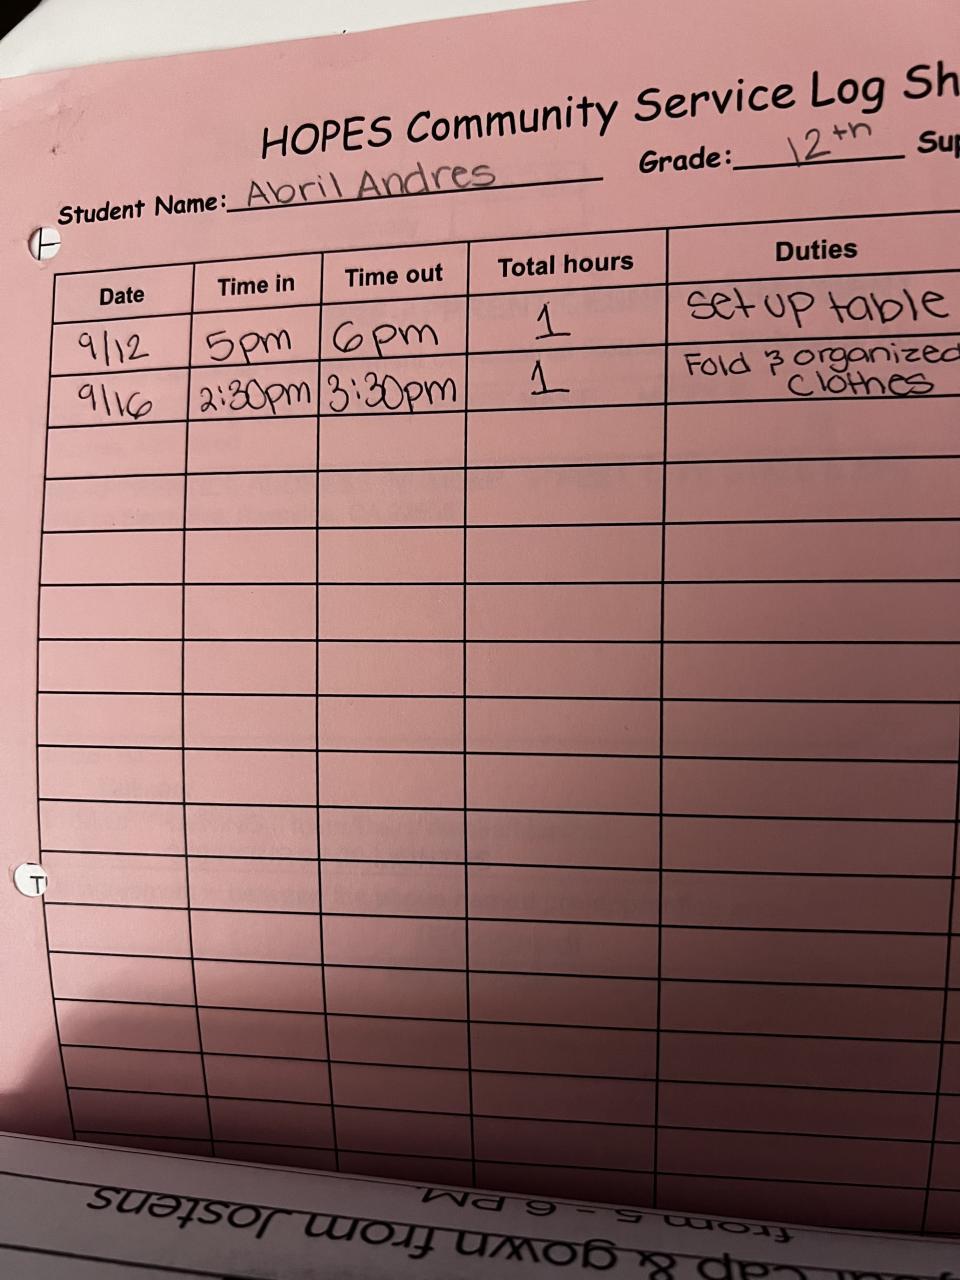 HOPES Community Service Log Sh
Student Name: Abril Andres Grade: 12th Sup
Date Time in Time out Total hours Duties
9/12 5pm 6pm 1 Set up table
9/16 2:30pm 3:30pm 1 Fold & organized
clothes
from 5 - 6 PM.
cap & gown from Jostens